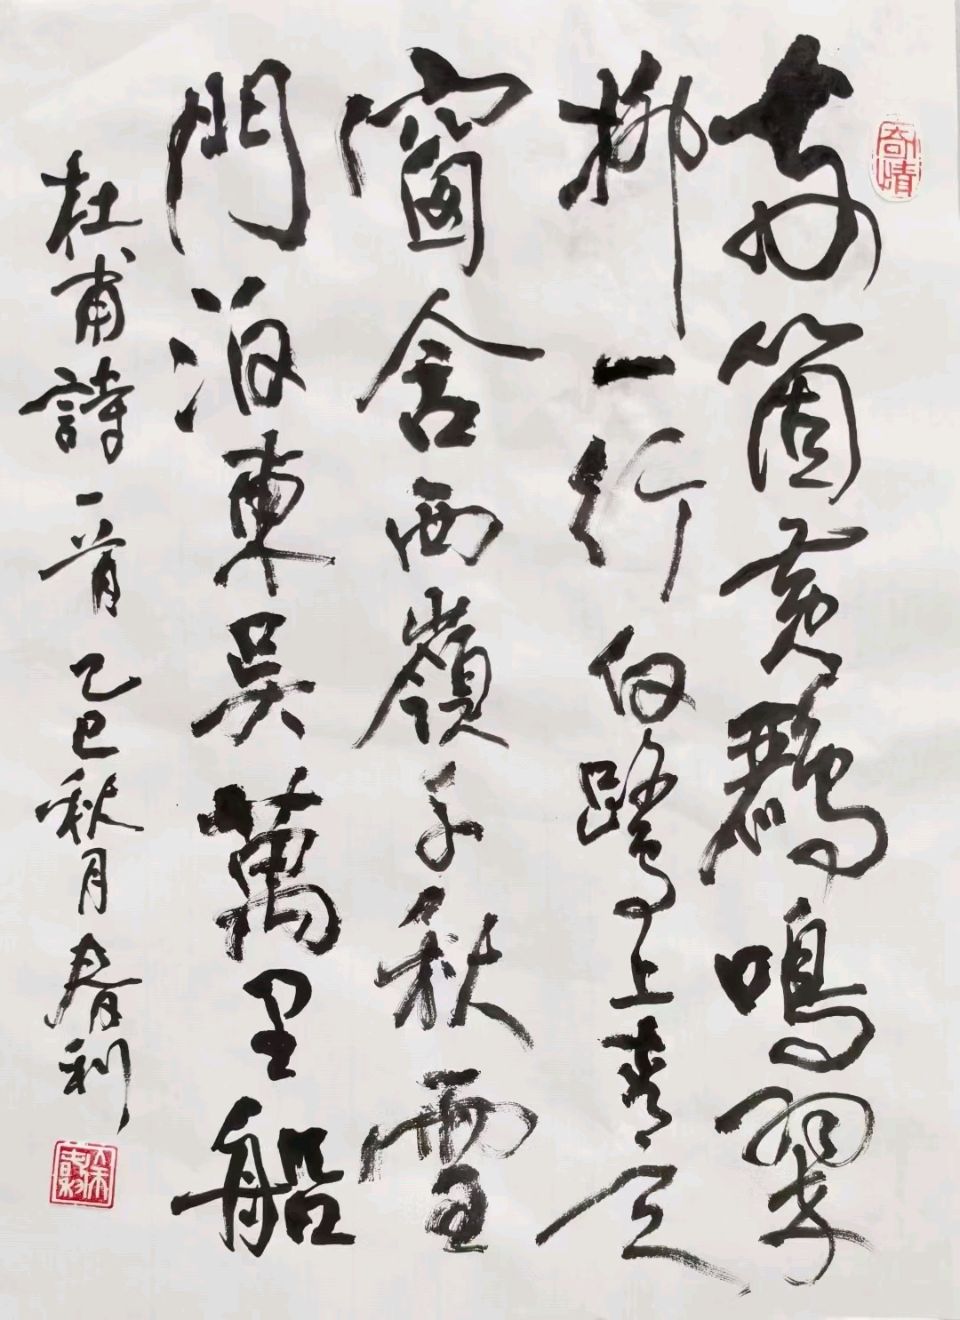 兩箇黃鸝鳴翠
柳一行白鷺上青天
窗含西嶺千秋雪
門泊東吳萬里船
杜甫詩一首 乙巳秋月春利